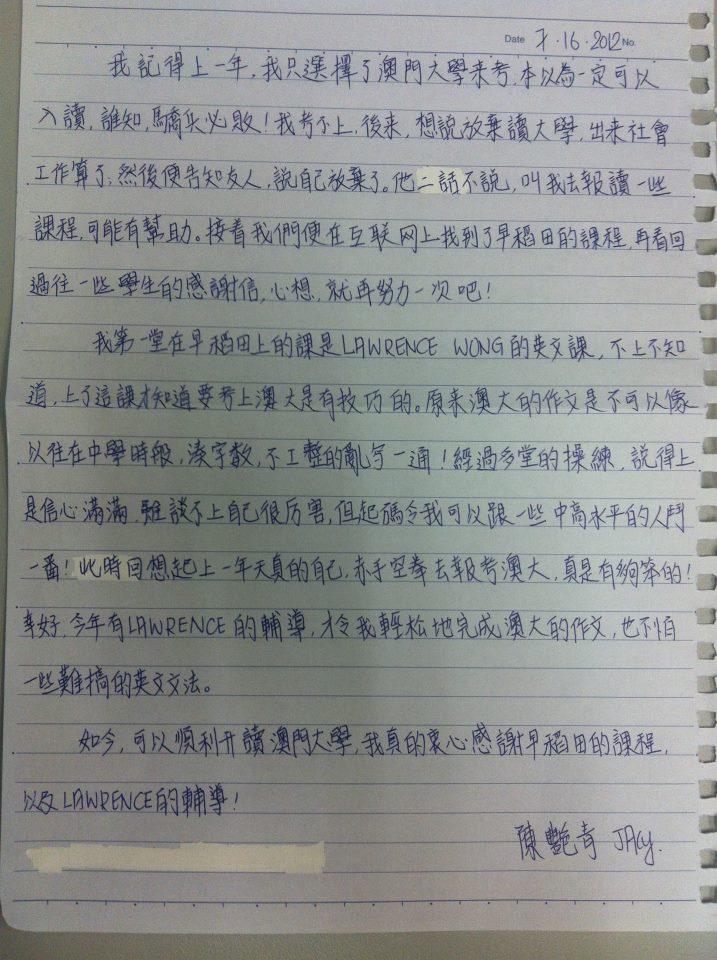 Date 7.16.2012 No.
我記得上一年,我只選擇了澳門大學来考,本以為一定可以
入讀,誰知,驕兵必敗!我考不上,後來,想說放棄讀大學,出來社會
工作算了,然後便告知友人,說自己放棄了。他二話不說,叫我去報讀一些
課程,可能有幫助。接着我們便在互联网上找到了早稻田的課程,再看回
過往一些學生的感謝信,心想,就再努力一次吧!
我第一堂在早稻田上的課是LAWRENCE WONG的英文課,不上不知
道,上了這課才知道要考上澳大是有技巧的。原来澳大的作文是不可以像
以往在中學時般,湊字數,不工整的亂写一通!經過多堂的操練,說得上
是信心滿滿,雖談不上自己很厉害,但起碼令我可以跟一些中高水平的人鬥
一番!此時回想起上一年天真的自己,赤手空拳去報考澳大,真是有夠笨的!
幸好,今年有LAWRENCE的輔導,才令我輕松地完成澳大的作文,也不怕
一些難搞的英文文法。
如今,可以順利升讀澳門大學,我真的衷心感謝早稻田的課程,
以及LAWRENCE的輔導!
陳艷青 JACY.